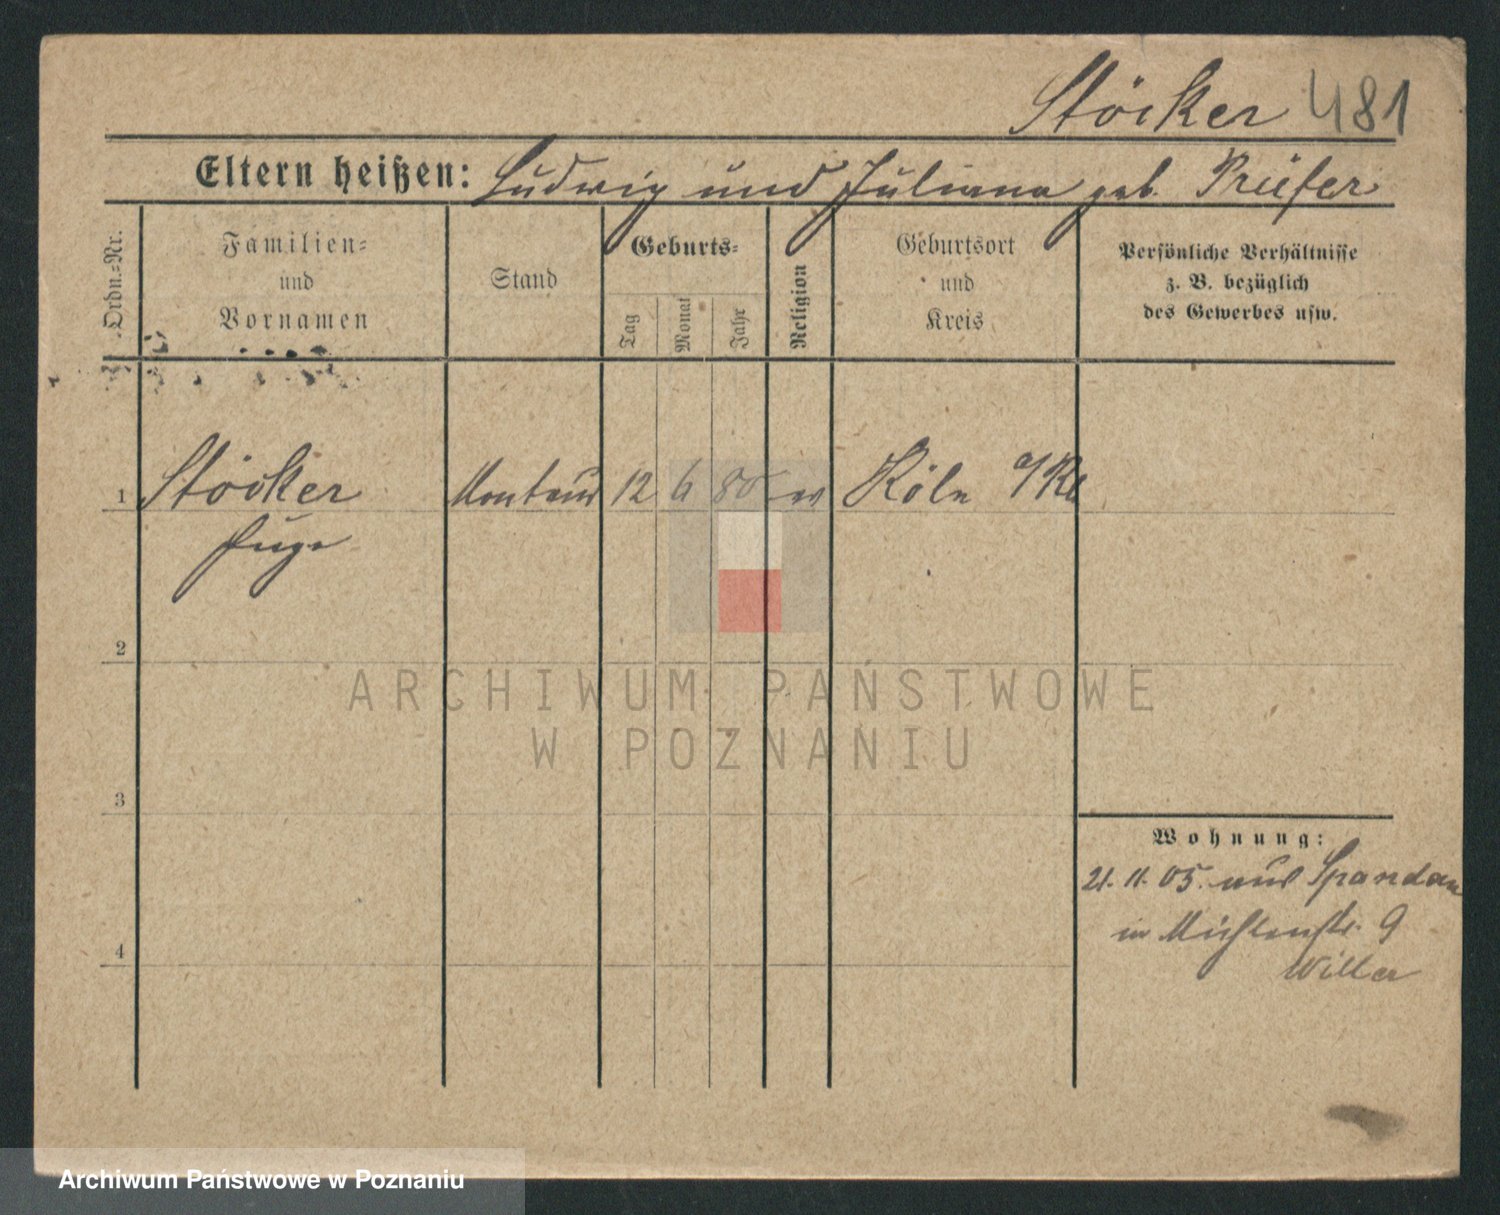 Stöcker 481
Eltern heißen: Ludwig und Juliana geb. Prüfer
Ordn.-Nr.
Familien-
und
Vornamen
Stand
Geburts-
Tag
Monat
Jahr
Religion
Geburtsort
und
Kreis
Persönliche Verhältnisse
z. B. bezüglich
des Gewerbes usw.
1 Stöcker Monteur 12 6 80 ev Köln a/Rh
Hugo
2
ARCHIWUM PAŃSTWOWE
W POZNANIU
3
Wohnung:
21. 11. 05. aus Spandau
in Mühlenstr. 9
Willer
4
Archiwum Państwowe w Poznaniu